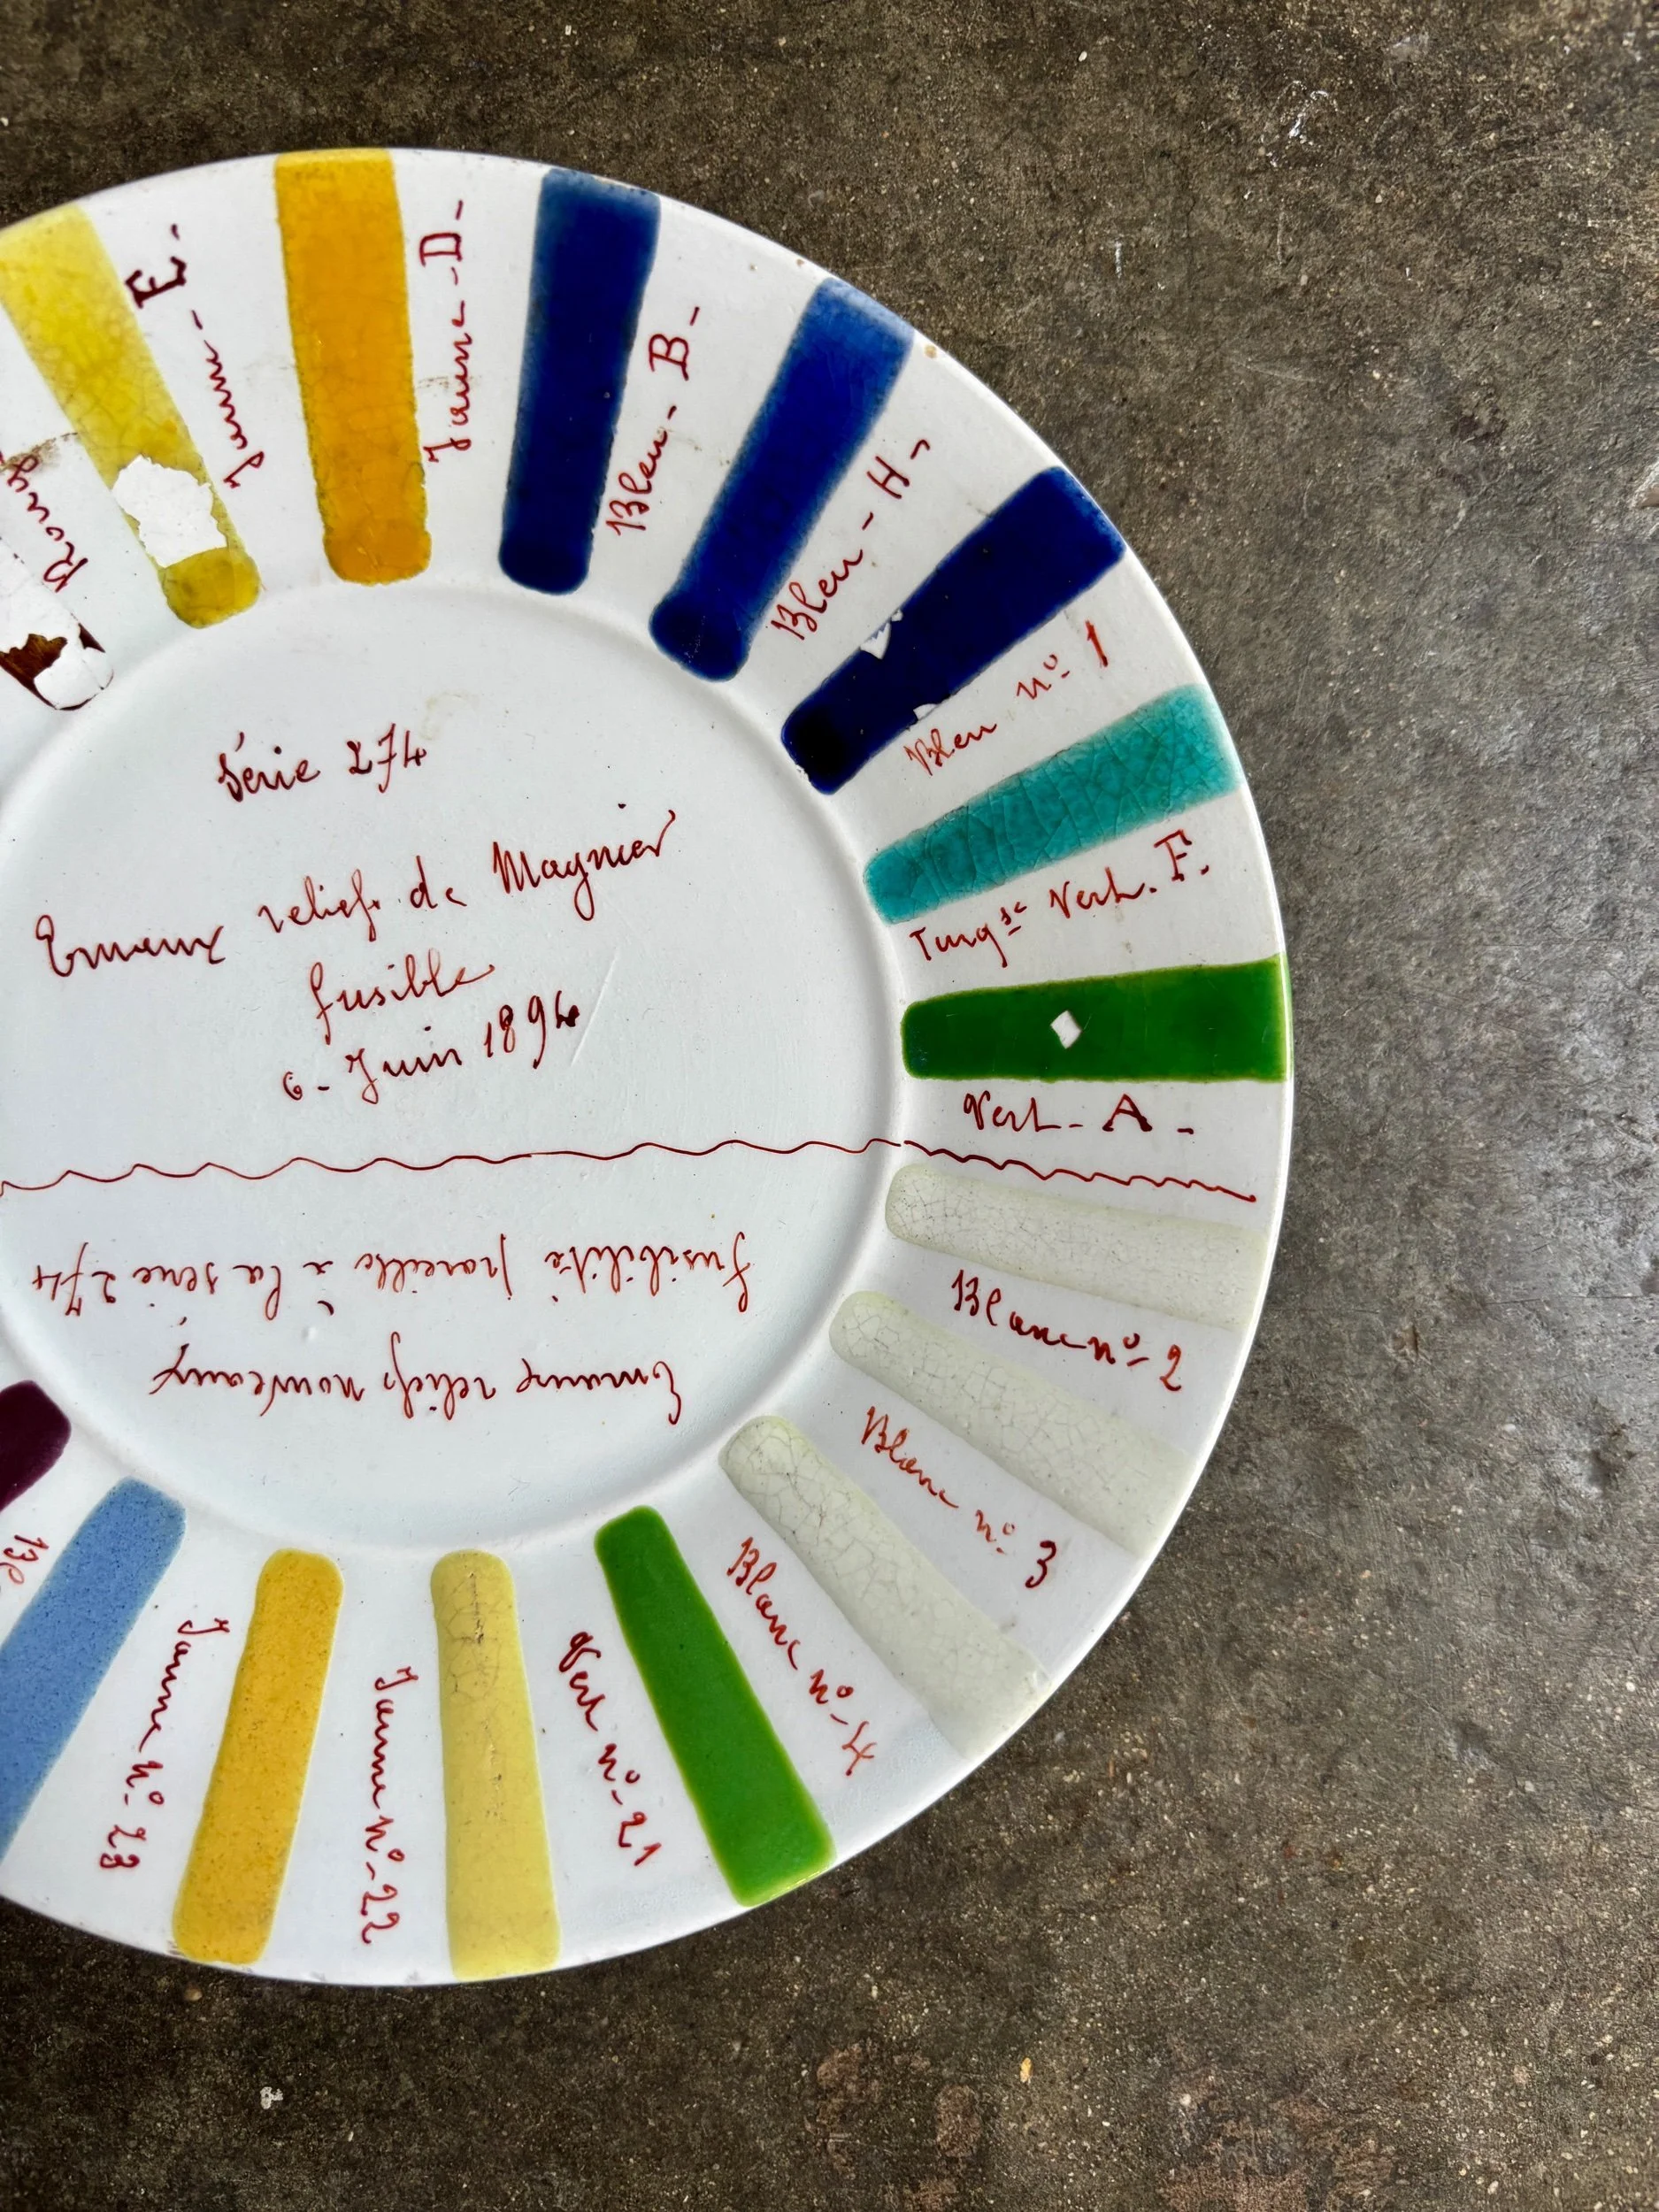 Série 274
Emaux reliefs de Magnier
fusible
6 - Juin 1894
Emaux reliefs nouveaux
fusibilité pareille à la série 274
Jaune - E -
Jaune - D -
Bleu - B -
Bleu - H -
Bleu nº 1
Turqse Vert. F.
Vert - A -
Blanc nº 2
Blanc nº 3
Blanc nº 4
Vert nº 21
Jaune nº 22
Jaune nº 23